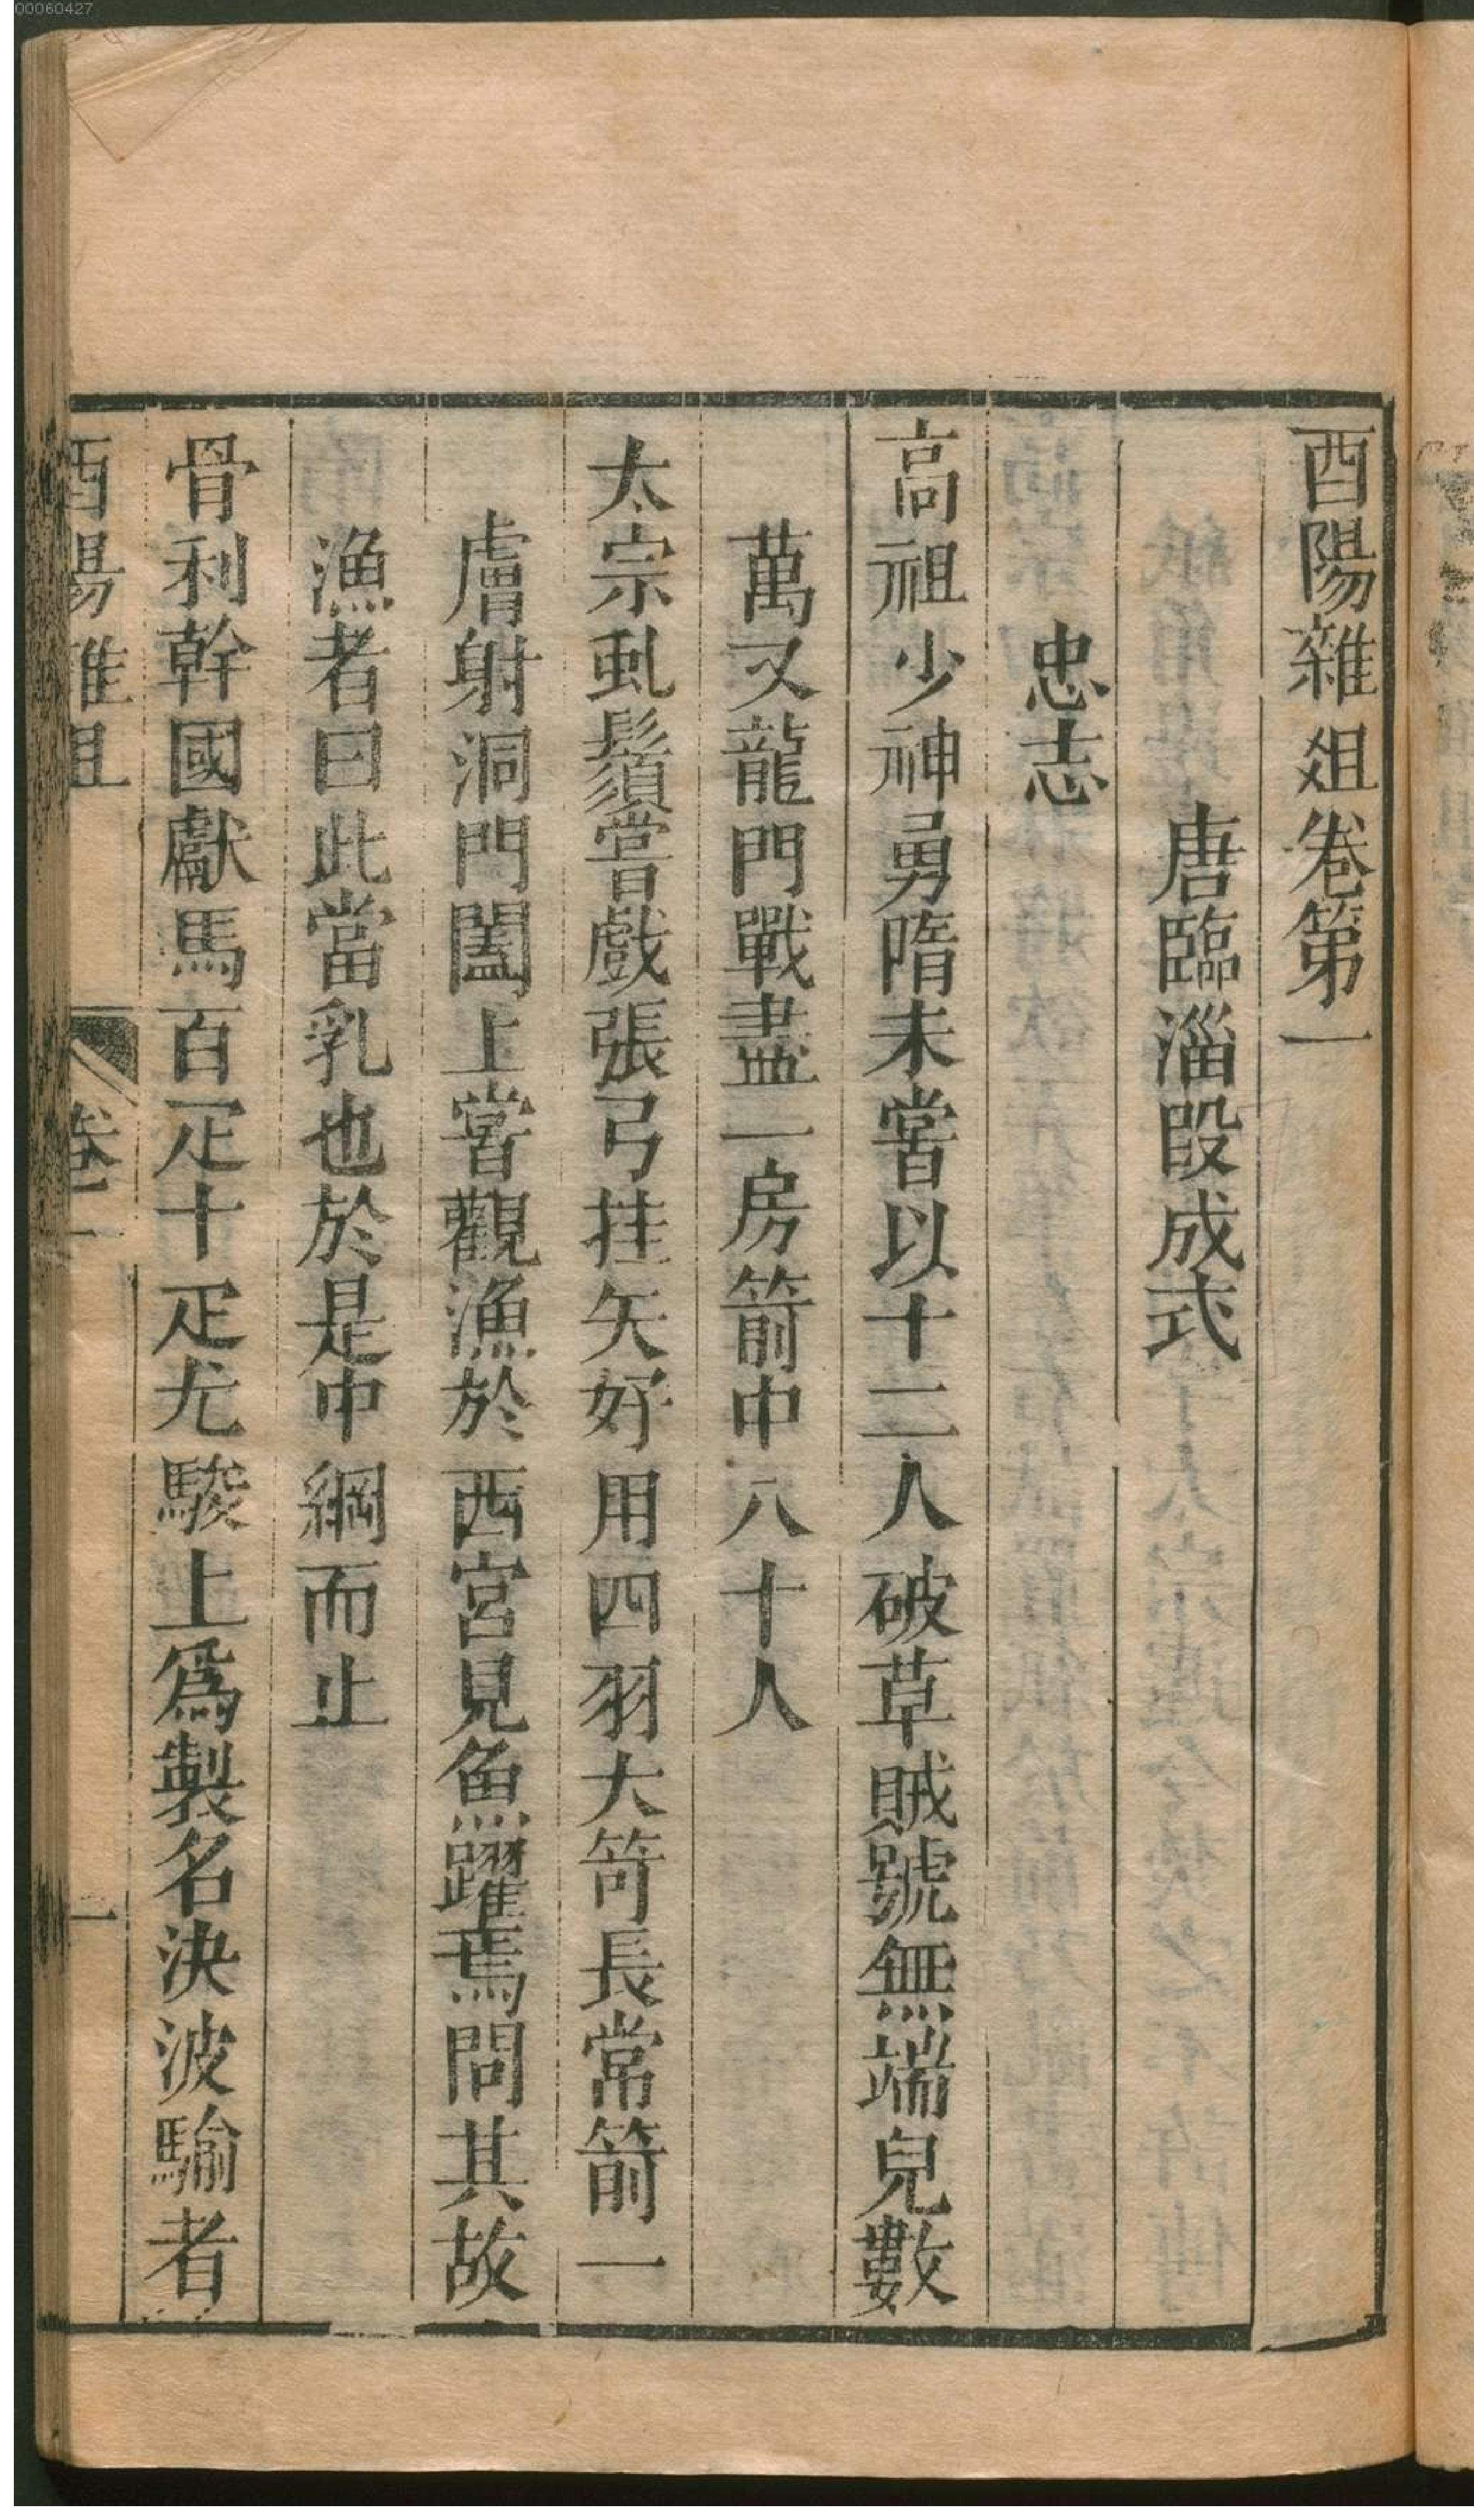 00060427
酉陽雜俎卷第一
唐臨淄段成式
忠志
高祖少神勇隋末嘗以十二人破草賊號無端兒數
萬又龍門戰盡一房箭中八十人
太宗虬鬚嘗戲張弓挂矢好用四羽大笴長常箭一
膚射洞門闔上嘗觀漁於西宮見魚躍焉問其故
漁者曰此當乳也於是中網而止
骨利幹國獻馬百疋十疋尤駿上為製名決波騟者
酉陽雜俎 卷一 一